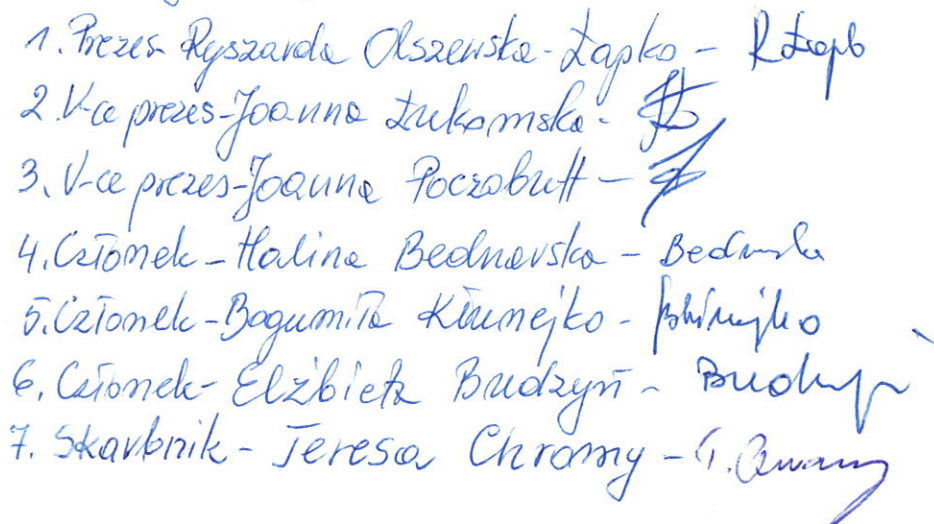 1. Prezes - Ryszarda Olszewska - Łapko -
2. V-ce prezes - Joanna Łukomska -
3. V-ce prezes - Joanna Poczobutt -
4. Członek - Halina Bednarska -
5. Członek - Bogumiła Klunejko -
6. Członek - Elżbieta Budzyń -
7. Skarbnik - Teresa Chromy -